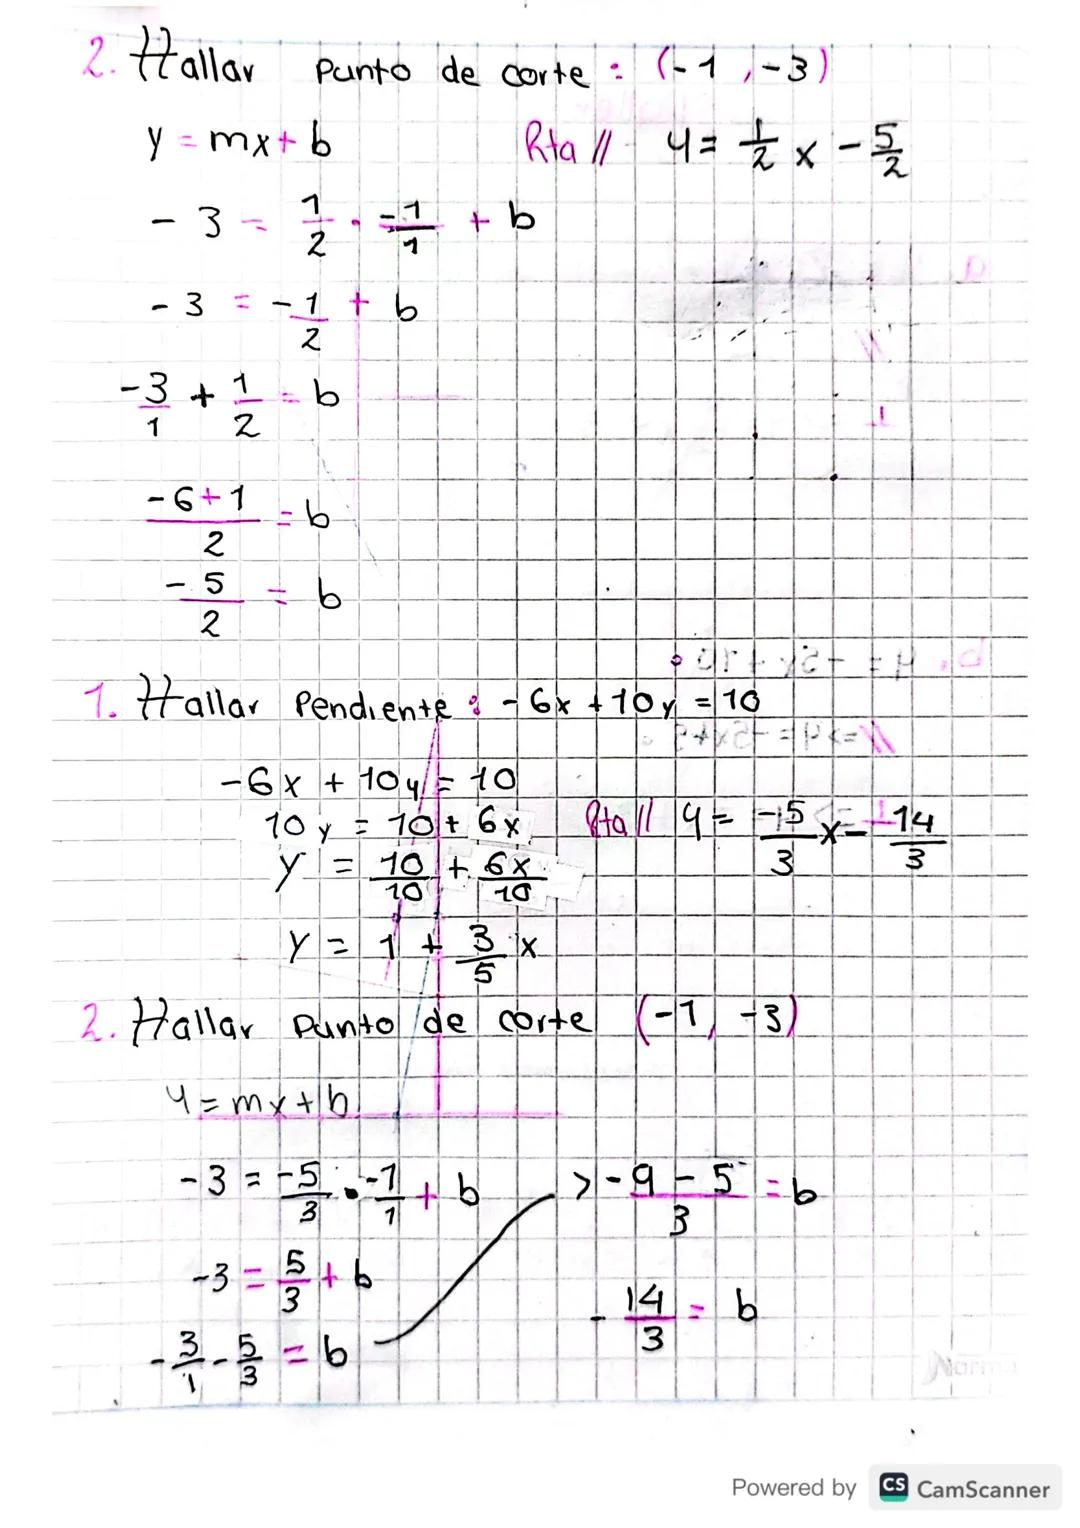 2. Hallar punto de corte : (-1, -3)
y = mx + b
Rta // y = 1/2 x - 5/2
- 3 = 1/2 · -1/1 + b
- 3 = - 1/2 + b
-3/1 + 1/2 = b
-6+1/2 = b
-5/2 = b
1. Hallar Pendiente : -6x + 10y = 10
-6x + 10y = 10
10y = 10 + 6x
Rta // y = -5/3 x - 14/3
y = 10/10 + 6x/10
y = 1 + 3/5 x
2. Hallar punto de corte (-1, -3)
y = mx + b
-3 = -5/3 · -1/1 + b
> -9 - 5/3 = b
-3 = 5/3 + b
- 14/3 = b
-3/1 - 5/3 = b
Norma
Powered by CS CamScanner